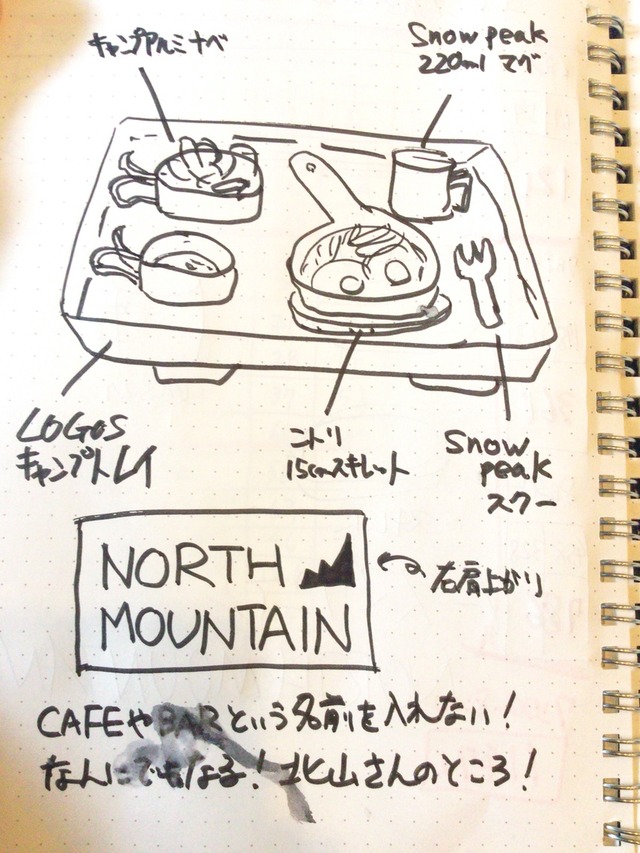 キャンプアルミナベ
Snow peak
220ml マグ
LOGOS
キャンプトレイ
ニトリ
15cmスキレット
Snow
peak
スクー
NORTH
MOUNTAIN
右肩上がり
CAFEやBARという名前を入れない!
なんにでもなる! 北山さんのところ!